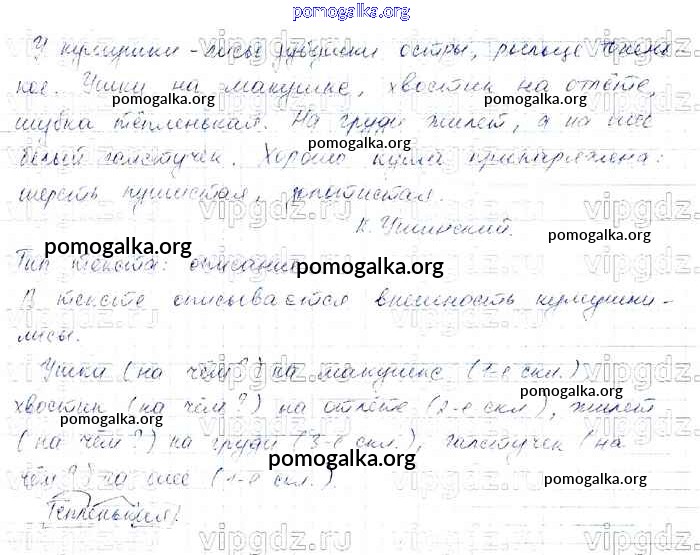 pomogalka.org
У кумушки-лисы зубушки остры, рыльце тонень-
кое. Ушки на макушке, хвостик на отлёте,
pomogalka.org pomogalka.org
шубка тёпленькая. На груди жилет, а на шее
белый галстучек. Хорошо кума принаряжена:
pomogalka.org pomogalka.org
шерсть пушистая, золотистая.
К. Ушинский.
pomogalka.org pomogalka.org
Тип текста: описание
pomogalka.org
В тексте описывается внешность кумушки-
лисы.
Ушки (на чём?) на макушке (1-е скл.)
pomogalka.org
хвостик (на чём?) на отлёте (2-е скл.), жилет
pomogalka.org
(на чём?) на груди (3-е скл.), галстучек (на
pomogalka.org
чём?) на шее (1-е скл.).
pomogalka.org
Тёпленькая.
vipgdz.ru vipgdz.ru vipgdz.ru